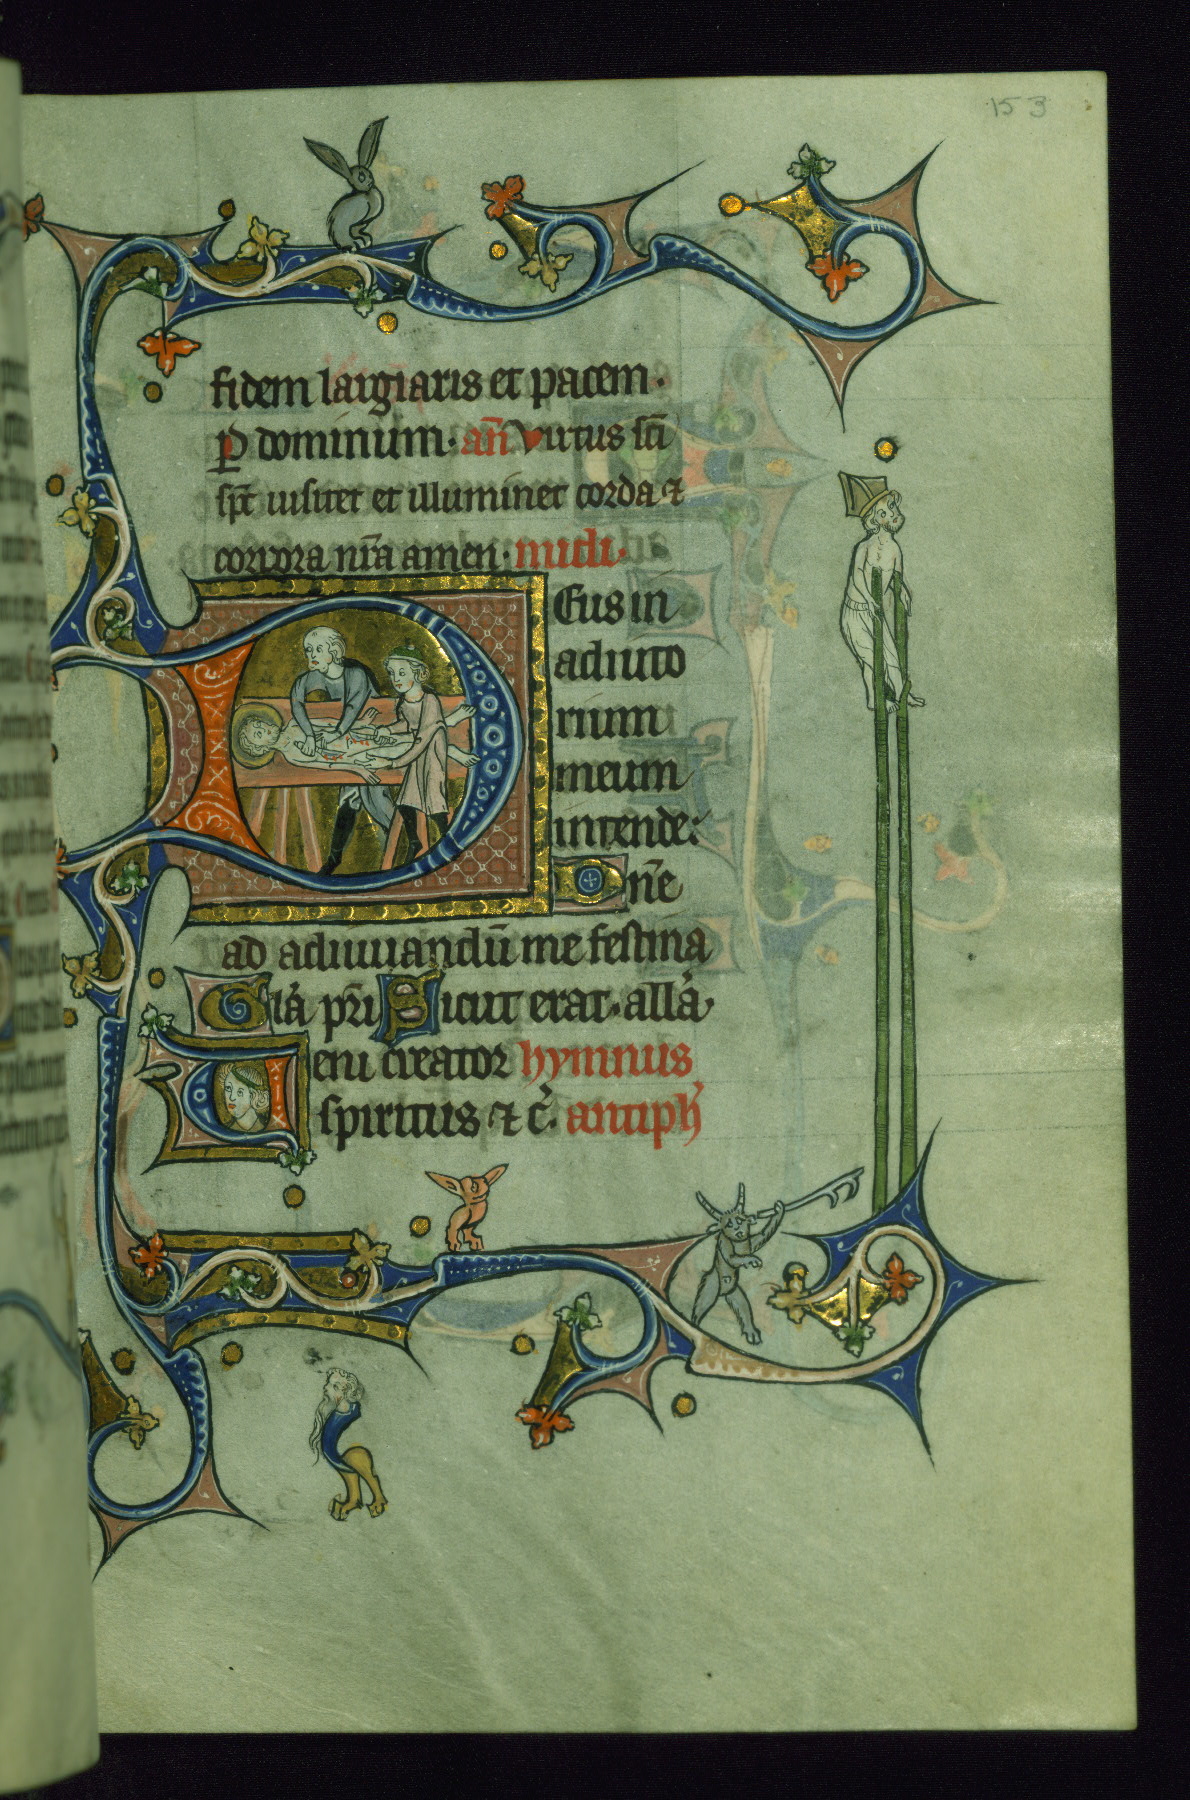 153
fidem largiaris et pacem.
P dominum. añ Virtus sc̃i
sp̃c uisitet et illuminet corda ⁊
corpora nr̃a amen. midi.
Deus in
adiuto
rium
meum
intende.
Dñe
ad adiuuandũ me festina
Gl̃a pr̃i Sicut erat. all̃a.
Ueni creator hymnus
spiritus ⁊ c̃. antiph̃